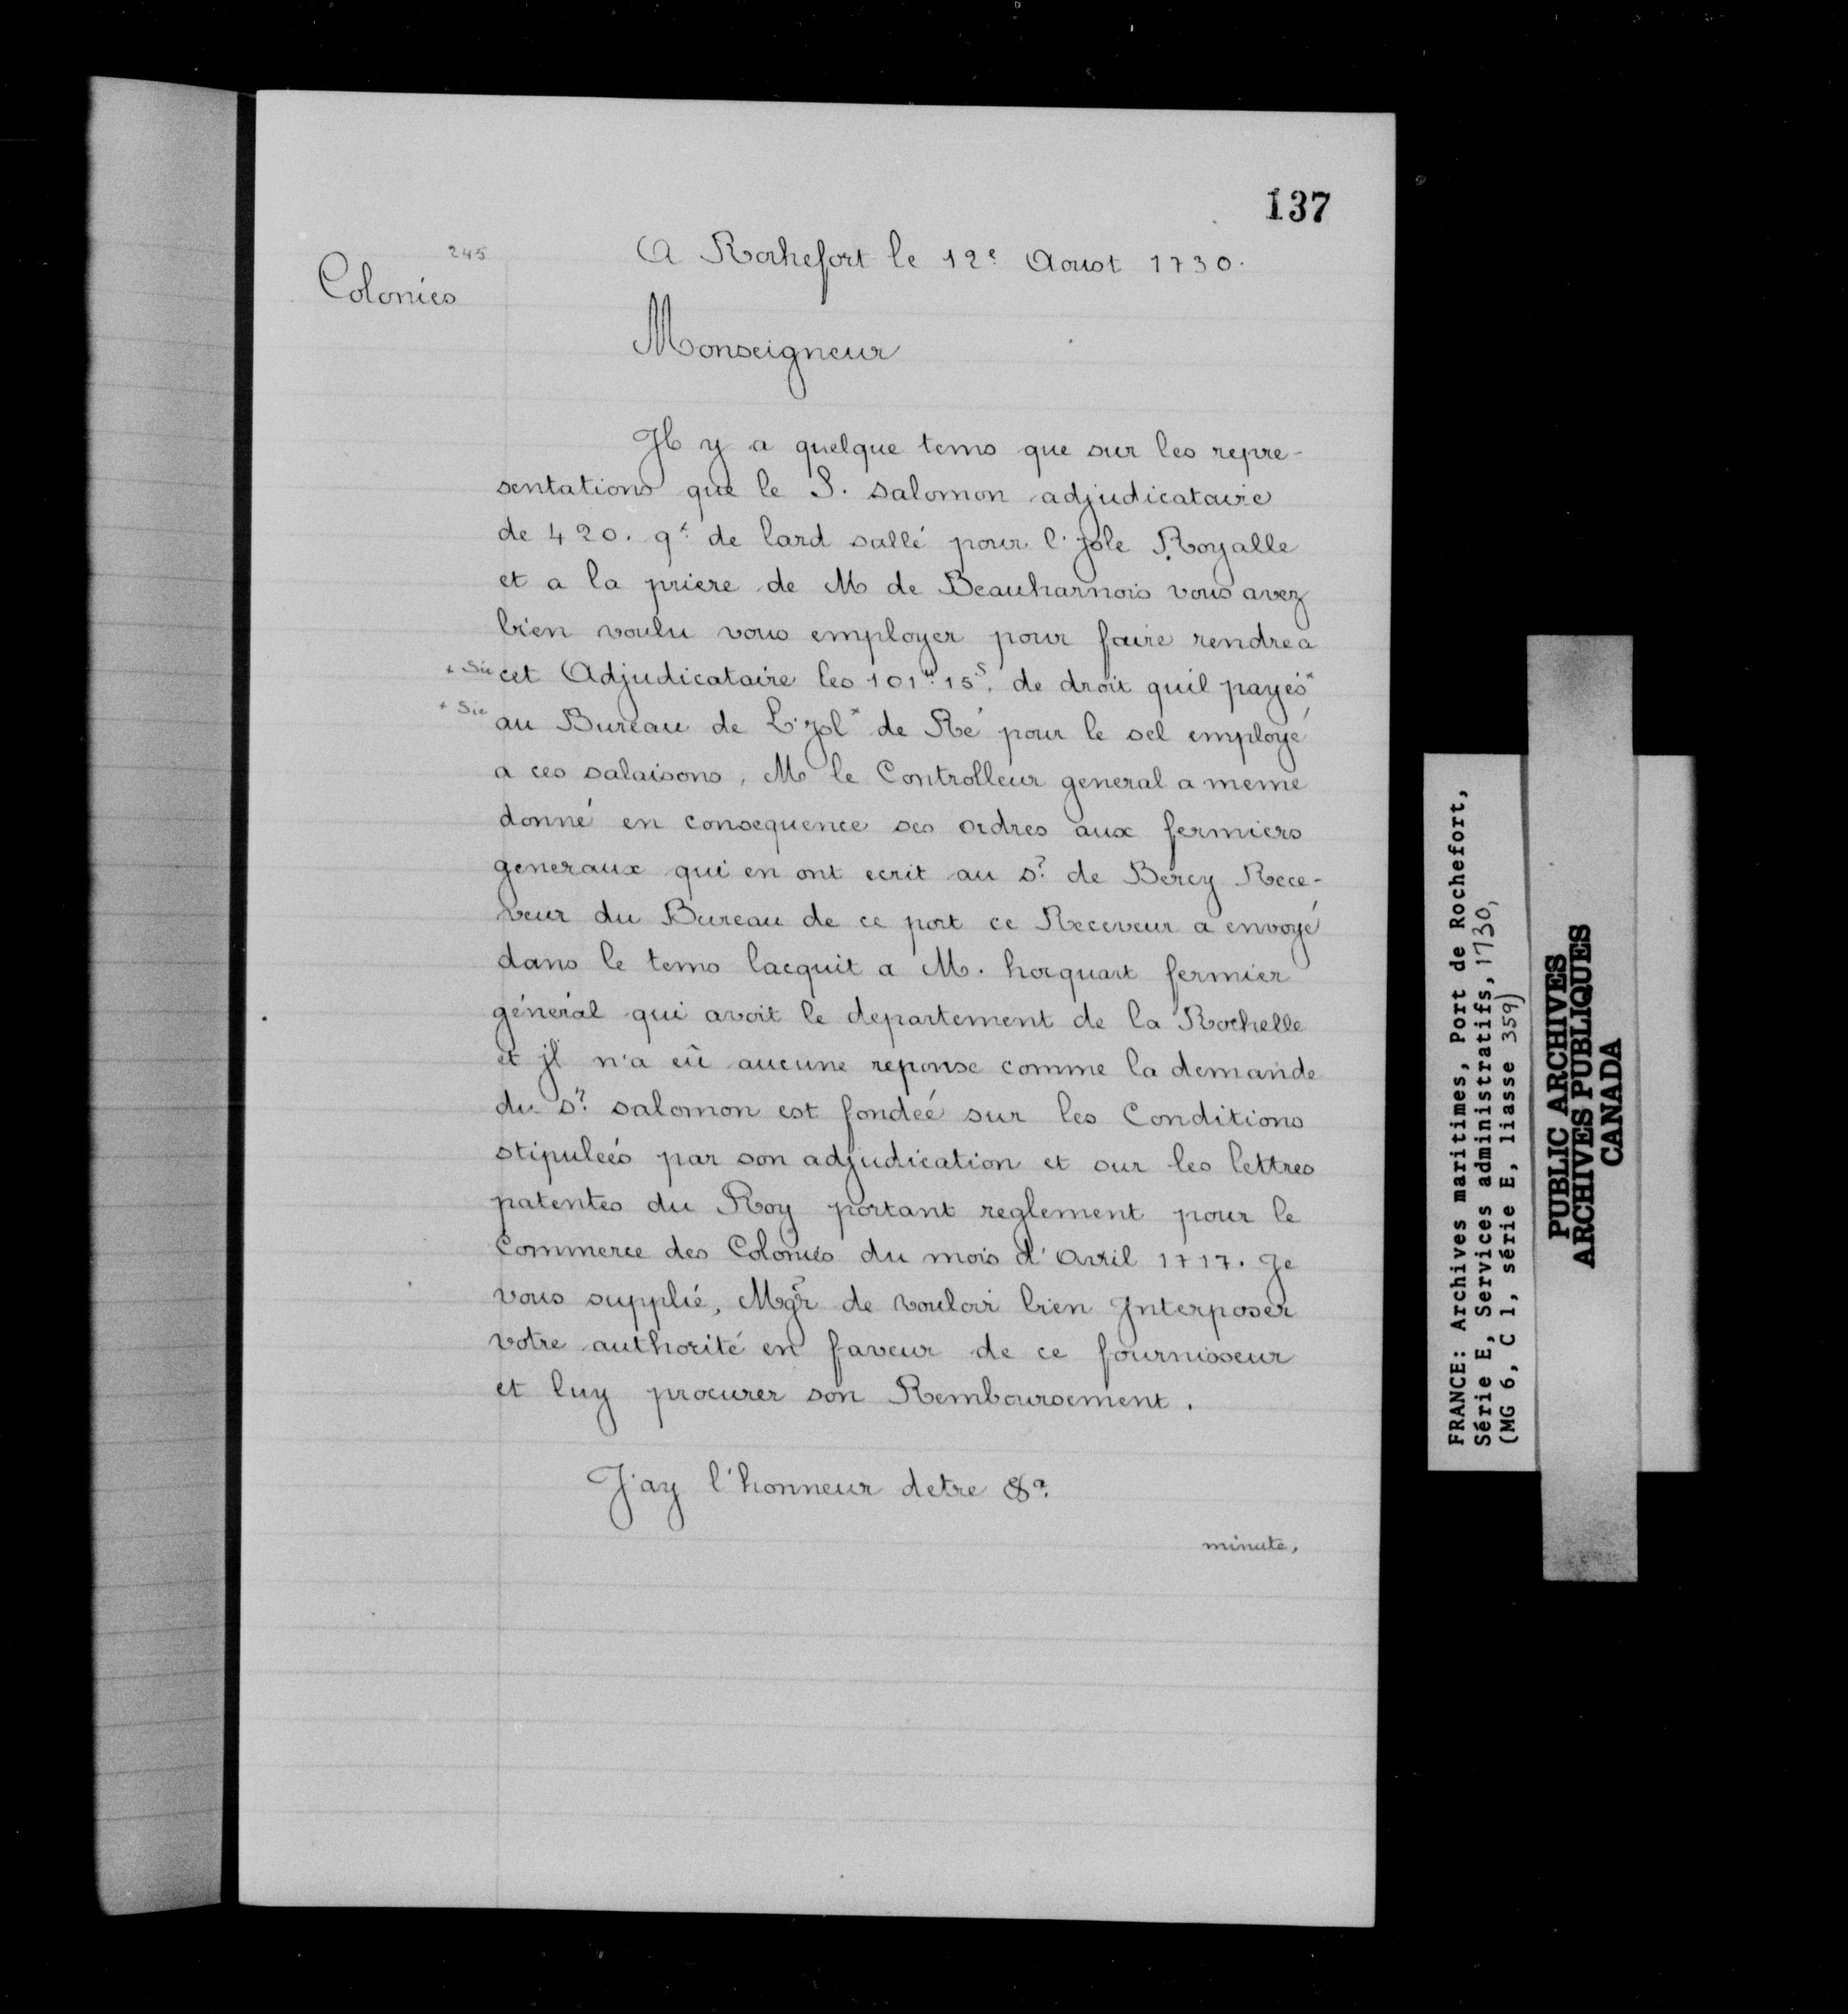 137
245
A Rochefort le 12e Aoust 1730.
Colonies
Monseigneur
Il y a quelque tems que sur les repre-
sentations que le S. Salomon adjudicataire
de 420. qx de lard sallé pour l'jsle Royalle
et a la priere de M de Beauharnois vous avez
bien voulu vous employer pour faire rendre a
+ Sic cet Adjudicataire les 101tt 15s. de droit quil payés*
+ Sic au Bureau de L'jsl* de Ré pour le sel employé
a ces salaisons, M le Controlleur general a meme
donné en consequence ses ordres aux fermiers
generaux qui en ont ecrit au sr. de Bercy Rece-
veur du Bureau de ce port ce Receveur a envoyé
dans le tems lacquit a M. hocquart fermier
général qui avoit le departement de la Rochelle
et jl n'a eû aucune reponse comme la demande
du sr. salomon est fondeé sur les Conditions
stipuleés par son adjudication et sur les lettres
patentes du Roy portant reglement pour le
Commerce des Colonies du mois d'Avril 1717. Je
vous supplié, Mgr de vouloir bien Interposer
votre authorité en faveur de ce fournisseur
et luy procurer son Remboursement.
J'ay l'honneur detre &a.
minute.
FRANCE: Archives maritimes, Port de Rochefort,
Série E, Services administratifs, 1730,
(MG 6, C 1, série E, liasse 359)
PUBLIC ARCHIVES
ARCHIVES PUBLIQUES
CANADA